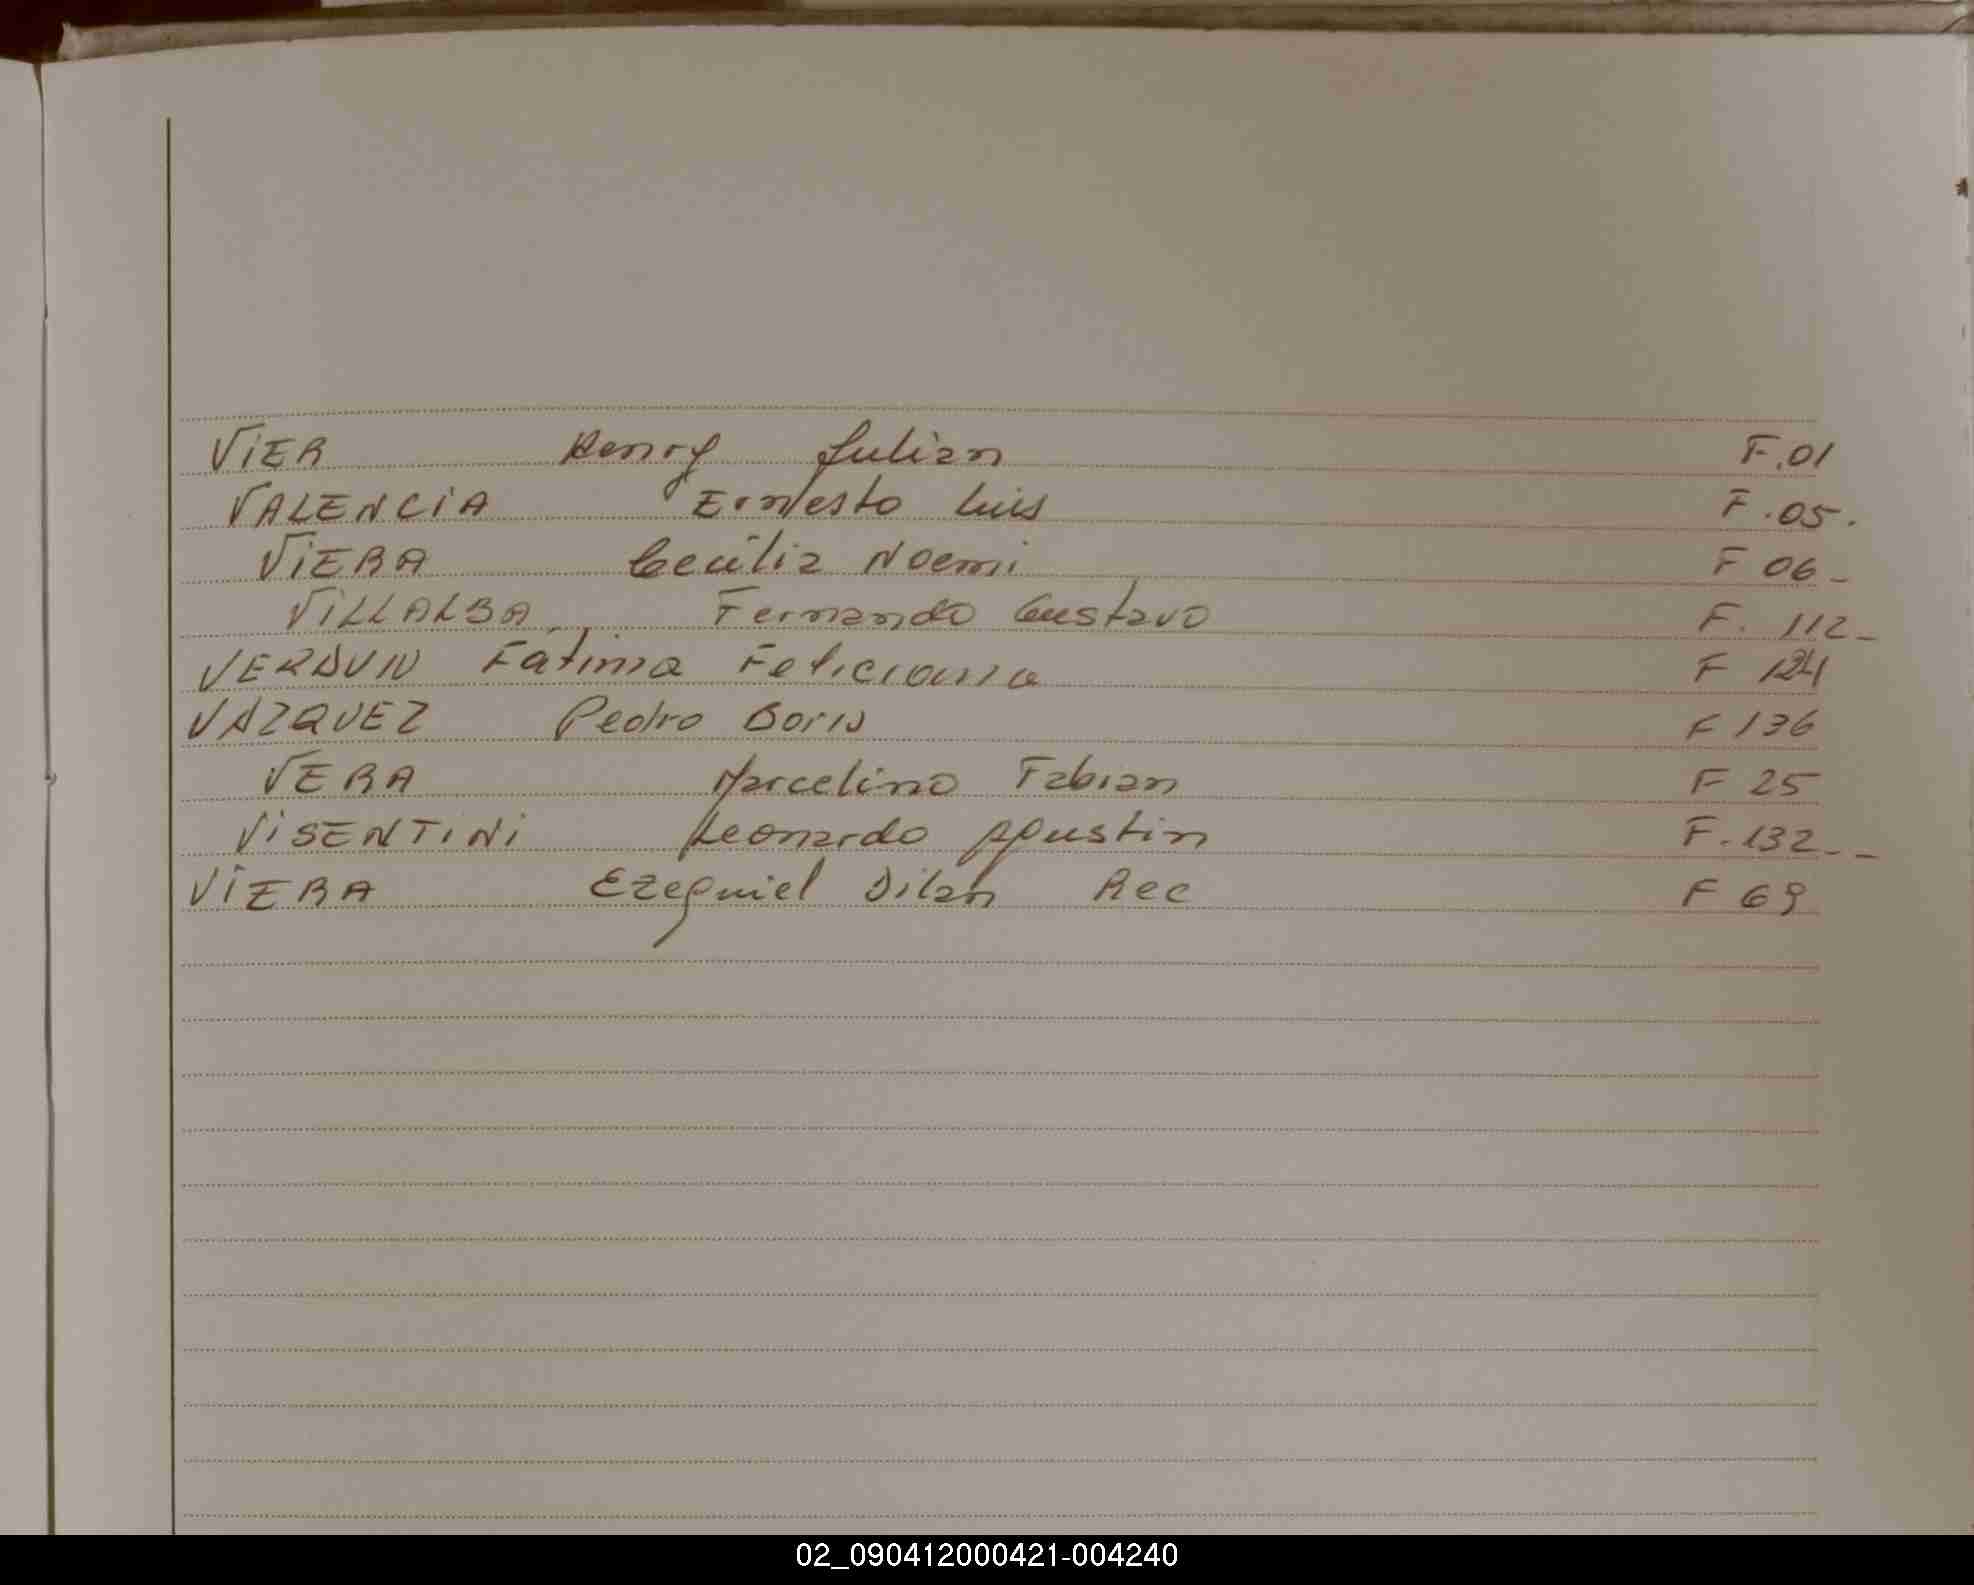 VIER Henry Julian F.01
VALENCIA Ernesto Luis F.05.
VIERA Cecilia Noemi F 06-
VILLALBA Fernando Gustavo F. 112-
VERDUN Fátima Feliciana F 124
VAZQUEZ Pedro Boris F 136
VERA Marcelino Fabian F 25
VISENTINI Leonardo Agustin F.132--
VIERA Ezequiel Dilan Rec F 69
02_090412000421-004240